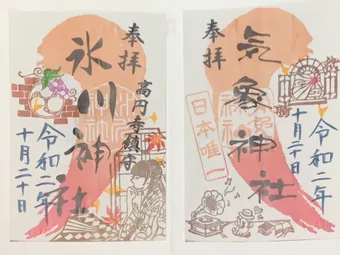 奉拝
高円寺鎮守
氷川神社
令和二年
十月二十日
奉拝
気象神社
日本唯一
令和二年
十月二十日